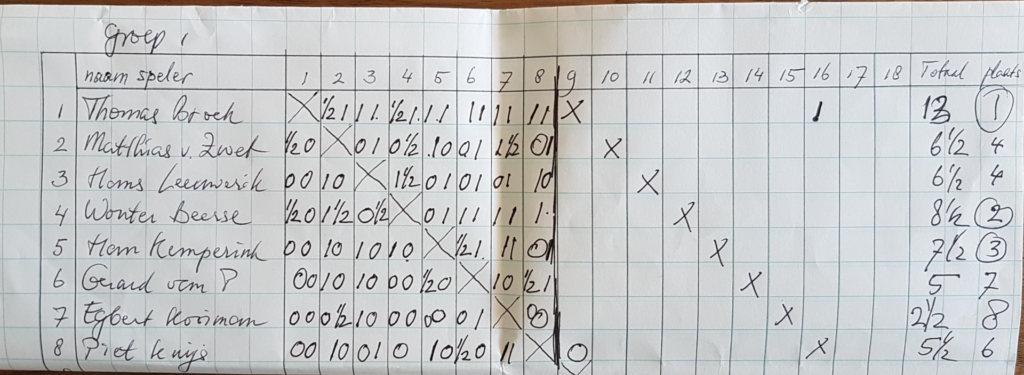 Groep 1
naam speler 1 2 3 4 5 6 7 8 9 10 11 12 13 14 15 16 17 18 Totaal plaats
1 Thomas Broek X ½1 11. ½1. 1.1 11 11 11 X 1 13 1
2 Matthias v. Zwet ½0 X 01 0½ .10 01 1½ 01 X 6½ 4
3 Hans Leeuwerik 00 10 X 1½ 01 01 01 10 X 6½ 4
4 Wouter Beerse ½0 1½ 0½ X 01 11 11 1. X 8½ 2
5 Han Kemperink 00 10 10 10 X ½1. 11 01 X 7½ 3
6 Gerard van P 00 10 10 00 ½0 X 10 ½1 X 5 7
7 Egbert Kooiman 00 0½ 10 00 00 01 X 00 X 2½ 8
8 Piet 00 10 01 0 10 ½0 11 X 0 X 5½ 6